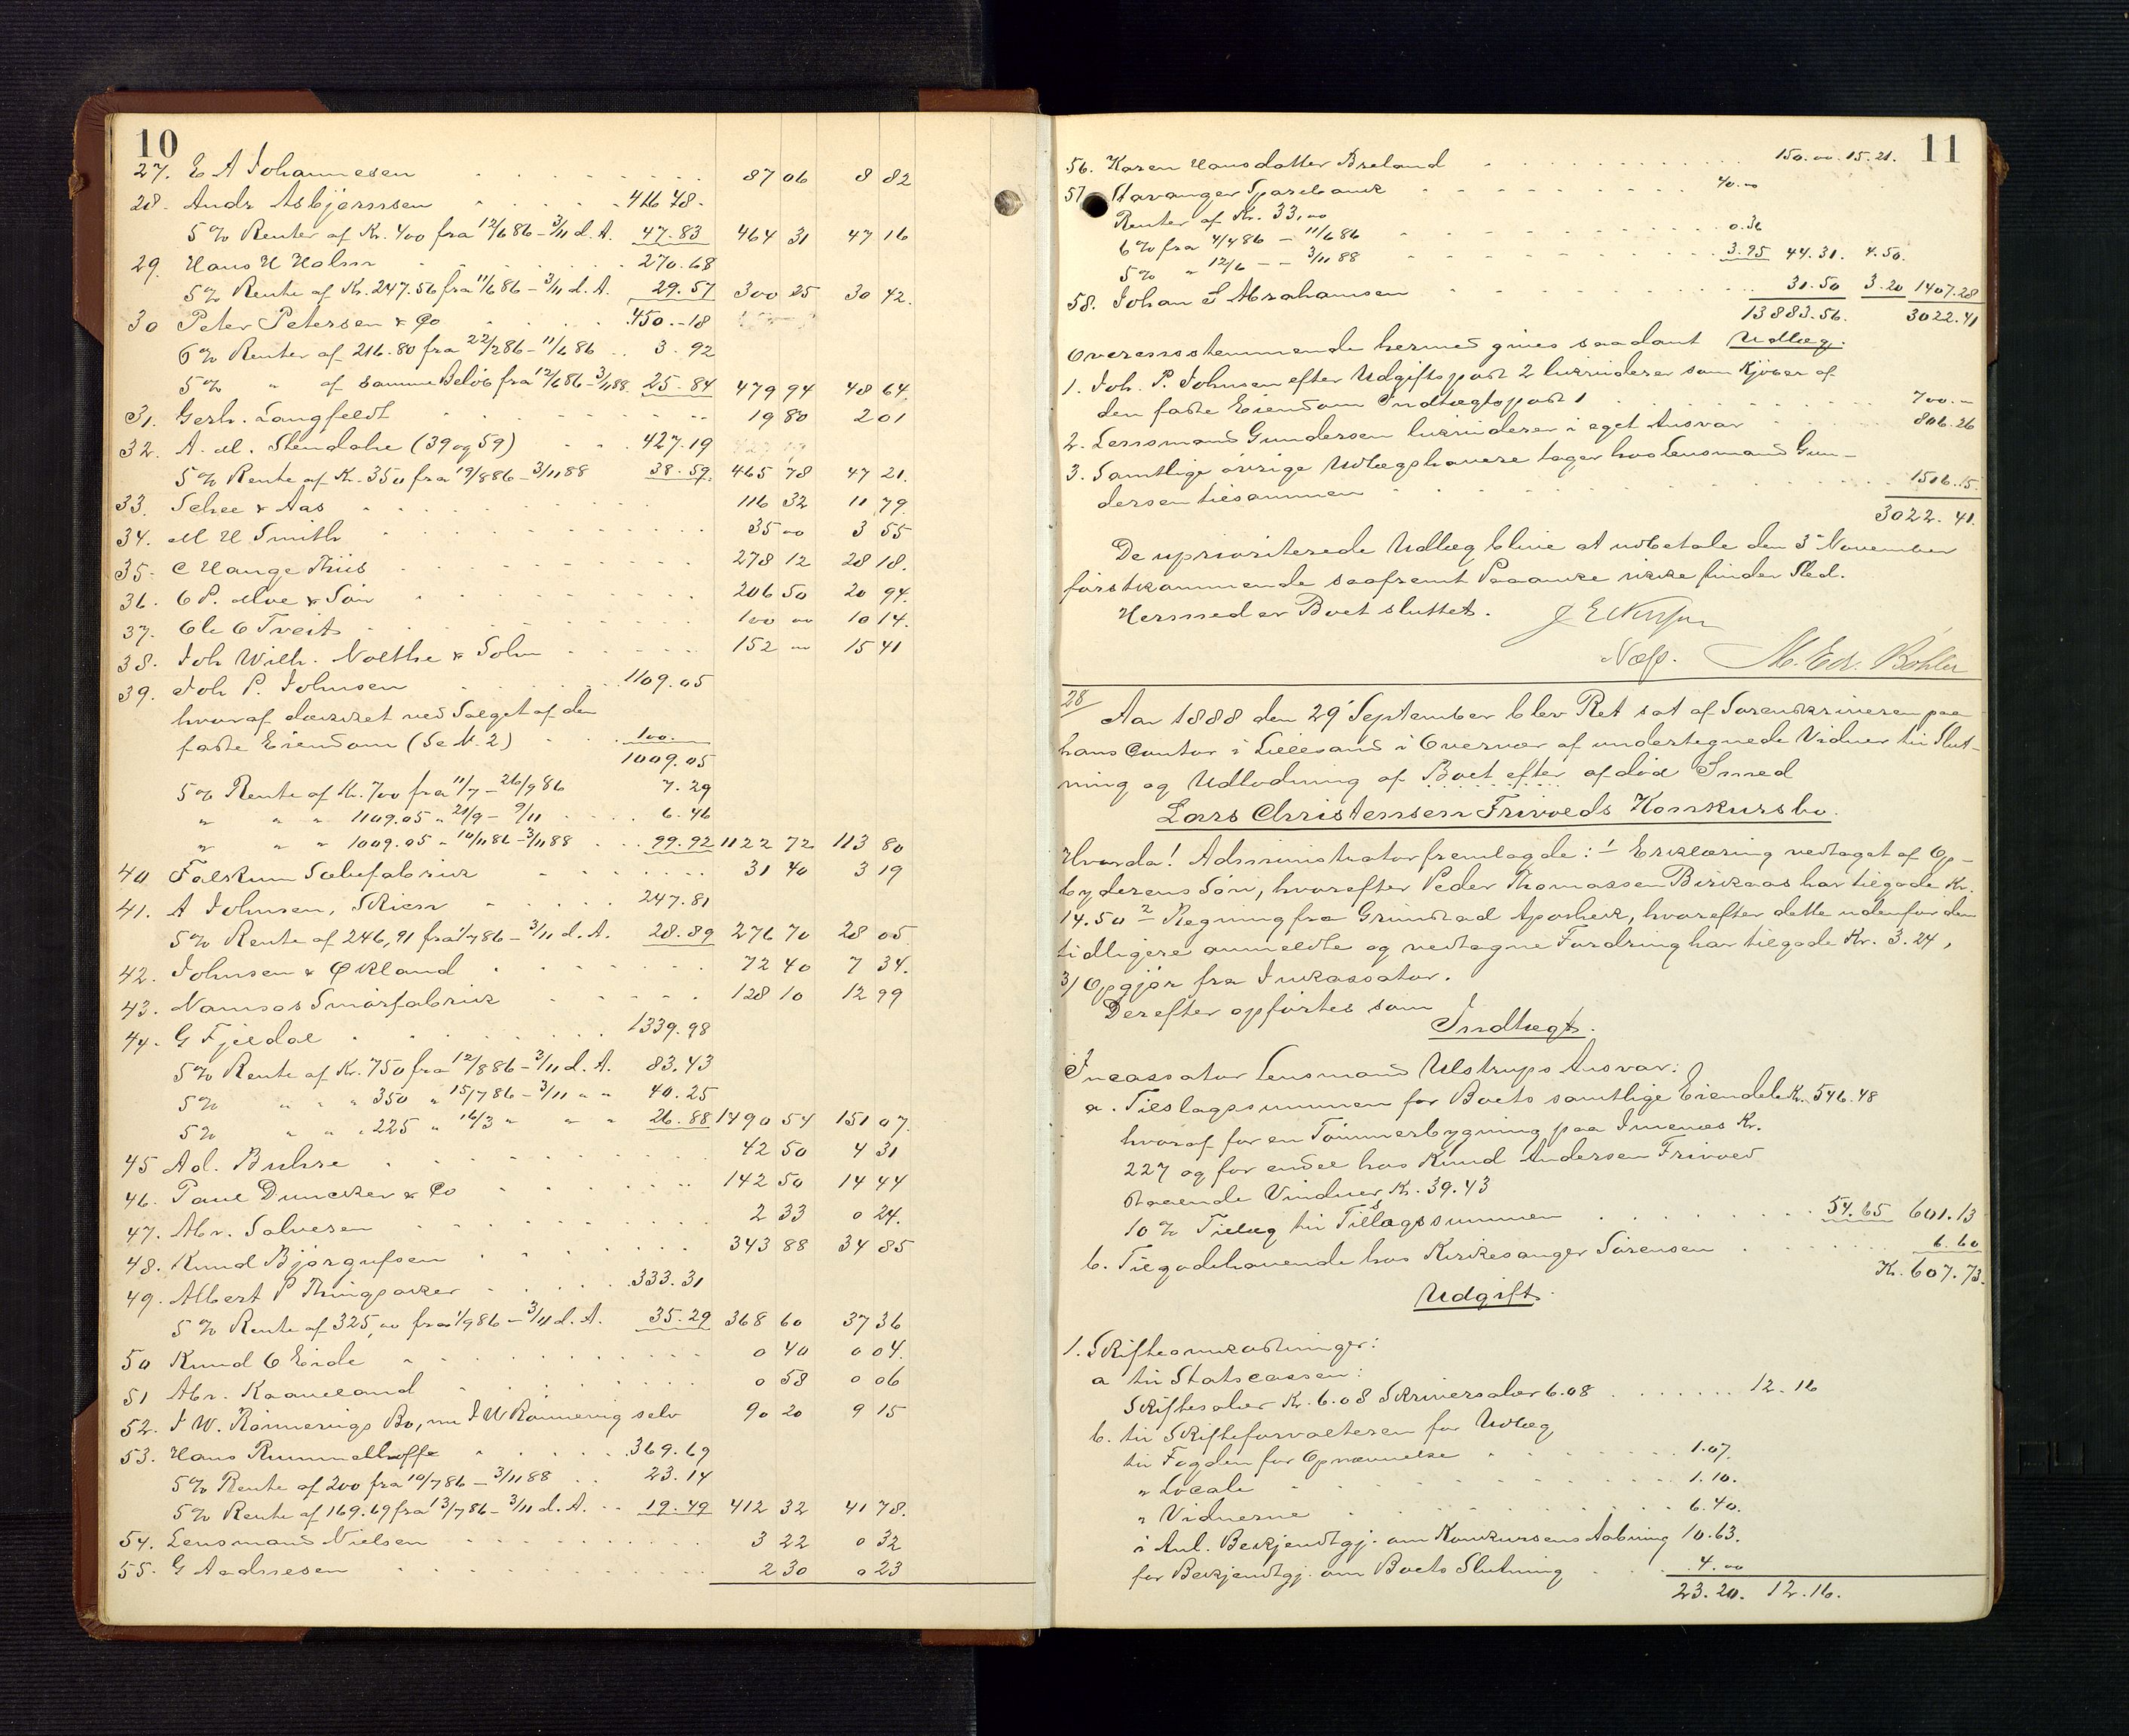 10
27. E A Johannesen 87 06 8 82
28. Andr Asbjørnssen 416 48
5 % Renter af Kr. 400 fra 12/6 86 - 3/11 d. A. 47.83 464 31 47 16
29. Hans H Holm 270.68
5 % Rente af Kr. 247.56 fra 11/6 86 - 3/11 d. A. 29.57 300 25 30 42.
30 Peter Petersen & Co 450.-18
6 % Renter af 216.80 fra 22/2 86 - 11/6 86 3.92
5 % " af samme Beløb fra 12/6 86 - 3/11 88 25.84 479 94 48 64
31. Gerh. Langfeldt 19 80 2 01
32. A. M. Stendahl (39 og 59) 427.19
5 % Rente af Kr. 350 fra 19/8 86 - 3/11 88 38.59. 465 78 47 21.
33. Schee & Aas 116 32 11 79.
34. M H Smith 35 00 3 55
35. C Hauge Thiis 278 12 28 18.
36. O P. Moe & Søn 206 50 20 94.
37. Ole O Tveit 100 00 10 14.
38. Joh Wilh. Nolthe & Sohn 152 00 15 41
39. Joh P. Johnsen 1109.05
hvoraf dækket ved Salget af den
faste Eiendom (Se N. 2) 100.
1009.05
5 % Rente af Kr. 700 fra 11/7 - 26/9 86 7.29
" " " 1109.05 " 21/9 - 9/11 6.46
" " " 1009.05 " 10/11 86 - 3/11 88 99.92 1122 72 113 80
40 Falkum Sæbefabrik 31 40 3 19
41. A Johnsen, Skien 247.81
5 % Rente af 246,91 fra 1/7 86 - 3/11 d. A. 28.89 276 70 28 05
42. Johnsen & Økland 72 40 7 34.
43. Namsos Smørfabrik 128 10 12 99
44. G Fjeldal 1339.98
5 % Rente af Kr. 750 fra 12/8 86 - 3/11 d. A. 83.43
5 % " " " 350 " 15/7 86 - 3/11 " " 40.25
5 % " " " 225 " 16/3 " " " 26.88 1490 54 151 07.
45 Ad. Buhre 42 50 4 31
46. Paul Duncker & Co 142 50 14 44
47. Abr. Salvesen 2 33 0 24.
48. Knud Bjørgufsen 343 88 34 85
49. Albert P Thingsaker 333.31
5 % Rente af 325,00 fra 1/9 86 - 3/11 d. A. 35.29 368 60 37 36
50 Knud O Eide 0 40 0 04.
51 Abr. Kaaveland 0 58 0 06
52. J W. Rönnevigs Bo, nu J W Rönnevig selv 90 20 9 15
53. Hans Rummelhoff 369.69
5 % Rente af 200 fra 10/7 86 - 3/11 88 23.14
5 % Rente af 169.69 fra 13/7 86 - 3/11 d. A. 19.49 412 32 41 78.
54. Lensmand Nielsen 3 22 0 32
55. G Aadnesen 2 30 0 23
11
56. Karen Hansdatter Breland 150.00. 15.21.
57 Stavanger Sparebank 40.00
Renter af Kr. 33,00
6 % fra 4/4 86 - 11/6 86 0.36
5 % " 12/6 - - 3/11 88 3.95 44.31. 4.50.
58. Johan E Abrahamsen 31.50 3.20 1407.28
13883.56. 3022.41
Overensstemmende hermed gives saadant Udlæg.
1. Joh. P. Johnsen efter Udgiftspost 2 likviderer som Kjøber af
den faste Eiendom Indtægtspost 1 700.-
2. Lensmand Gundersen likviderer i eget Ansvar 806.26
3. Samtlige øvrige Udlægshavere tager hos Lensmand Gun-
dersen tilsammen 1516.15.
3022.41.
De uprioriterede Udlæg blive at udbetale den 3' November
førstkommende saafremt Paaanke ikke finder Sted.
Hermed er Boet sluttet.
M. Edv. Bøhler
28/
Aar 1888 den 29' September blev Ret sat af Sorenskriveren paa
hans Contor i Lillesand i Overvær af undertegnede Vidner til Slut-
ning og Udlodning af Boet efter afdød Smed
Lars Christensen Trivolds Konkursbo.
Hvorda! Administrator fremlagde: 1 Erklæring vedtaget af Op-
byderens Søn, hvorefter Peder Thomassen Birkaas har tilgode Kr.
14.50 2 Regning fra Grimstad Apothek, hvorefter dette udenfor den
tidligere anmeldte og vedtagne Fordring har tilgode Kr. 3.24,
3/ Opgjør fra Inkassator.
Derefter opførtes som
Indtægt.
Incassator Lensmand Ulstrups Ansvar:
a. Tilslagssummen for Boets samtlige Eiendele Kr. 546.48
hvoraf for en Tømmerbygning paa Imenes Kr.
227 og for endel hos Knud Andersen Trivold
staaende Vinduer Kr. 39.43
10 % Tillæg til Tilslagssummen 54.65 601.13
b. Tilgodehavende hos Kirkesanger Sørensen 6.60
Kr. 607.73.
Udgift.
1. Skifteomkostninger:
a til Statscassen:
Skiftesalær Kr. 6.08 Skriversalær 6.08 12.16
b. til Skifteforvalteren for Udlæg
til Fogden for Opnævnelse 1.07.
" Locale 1.10.
" Vidnerne 6.40.
i Anl. Bekjendtgj. om Konkursens Aabning 10.63.
for Bekjendtgj. om Boets Slutning 4.00
23.20. 12.16.